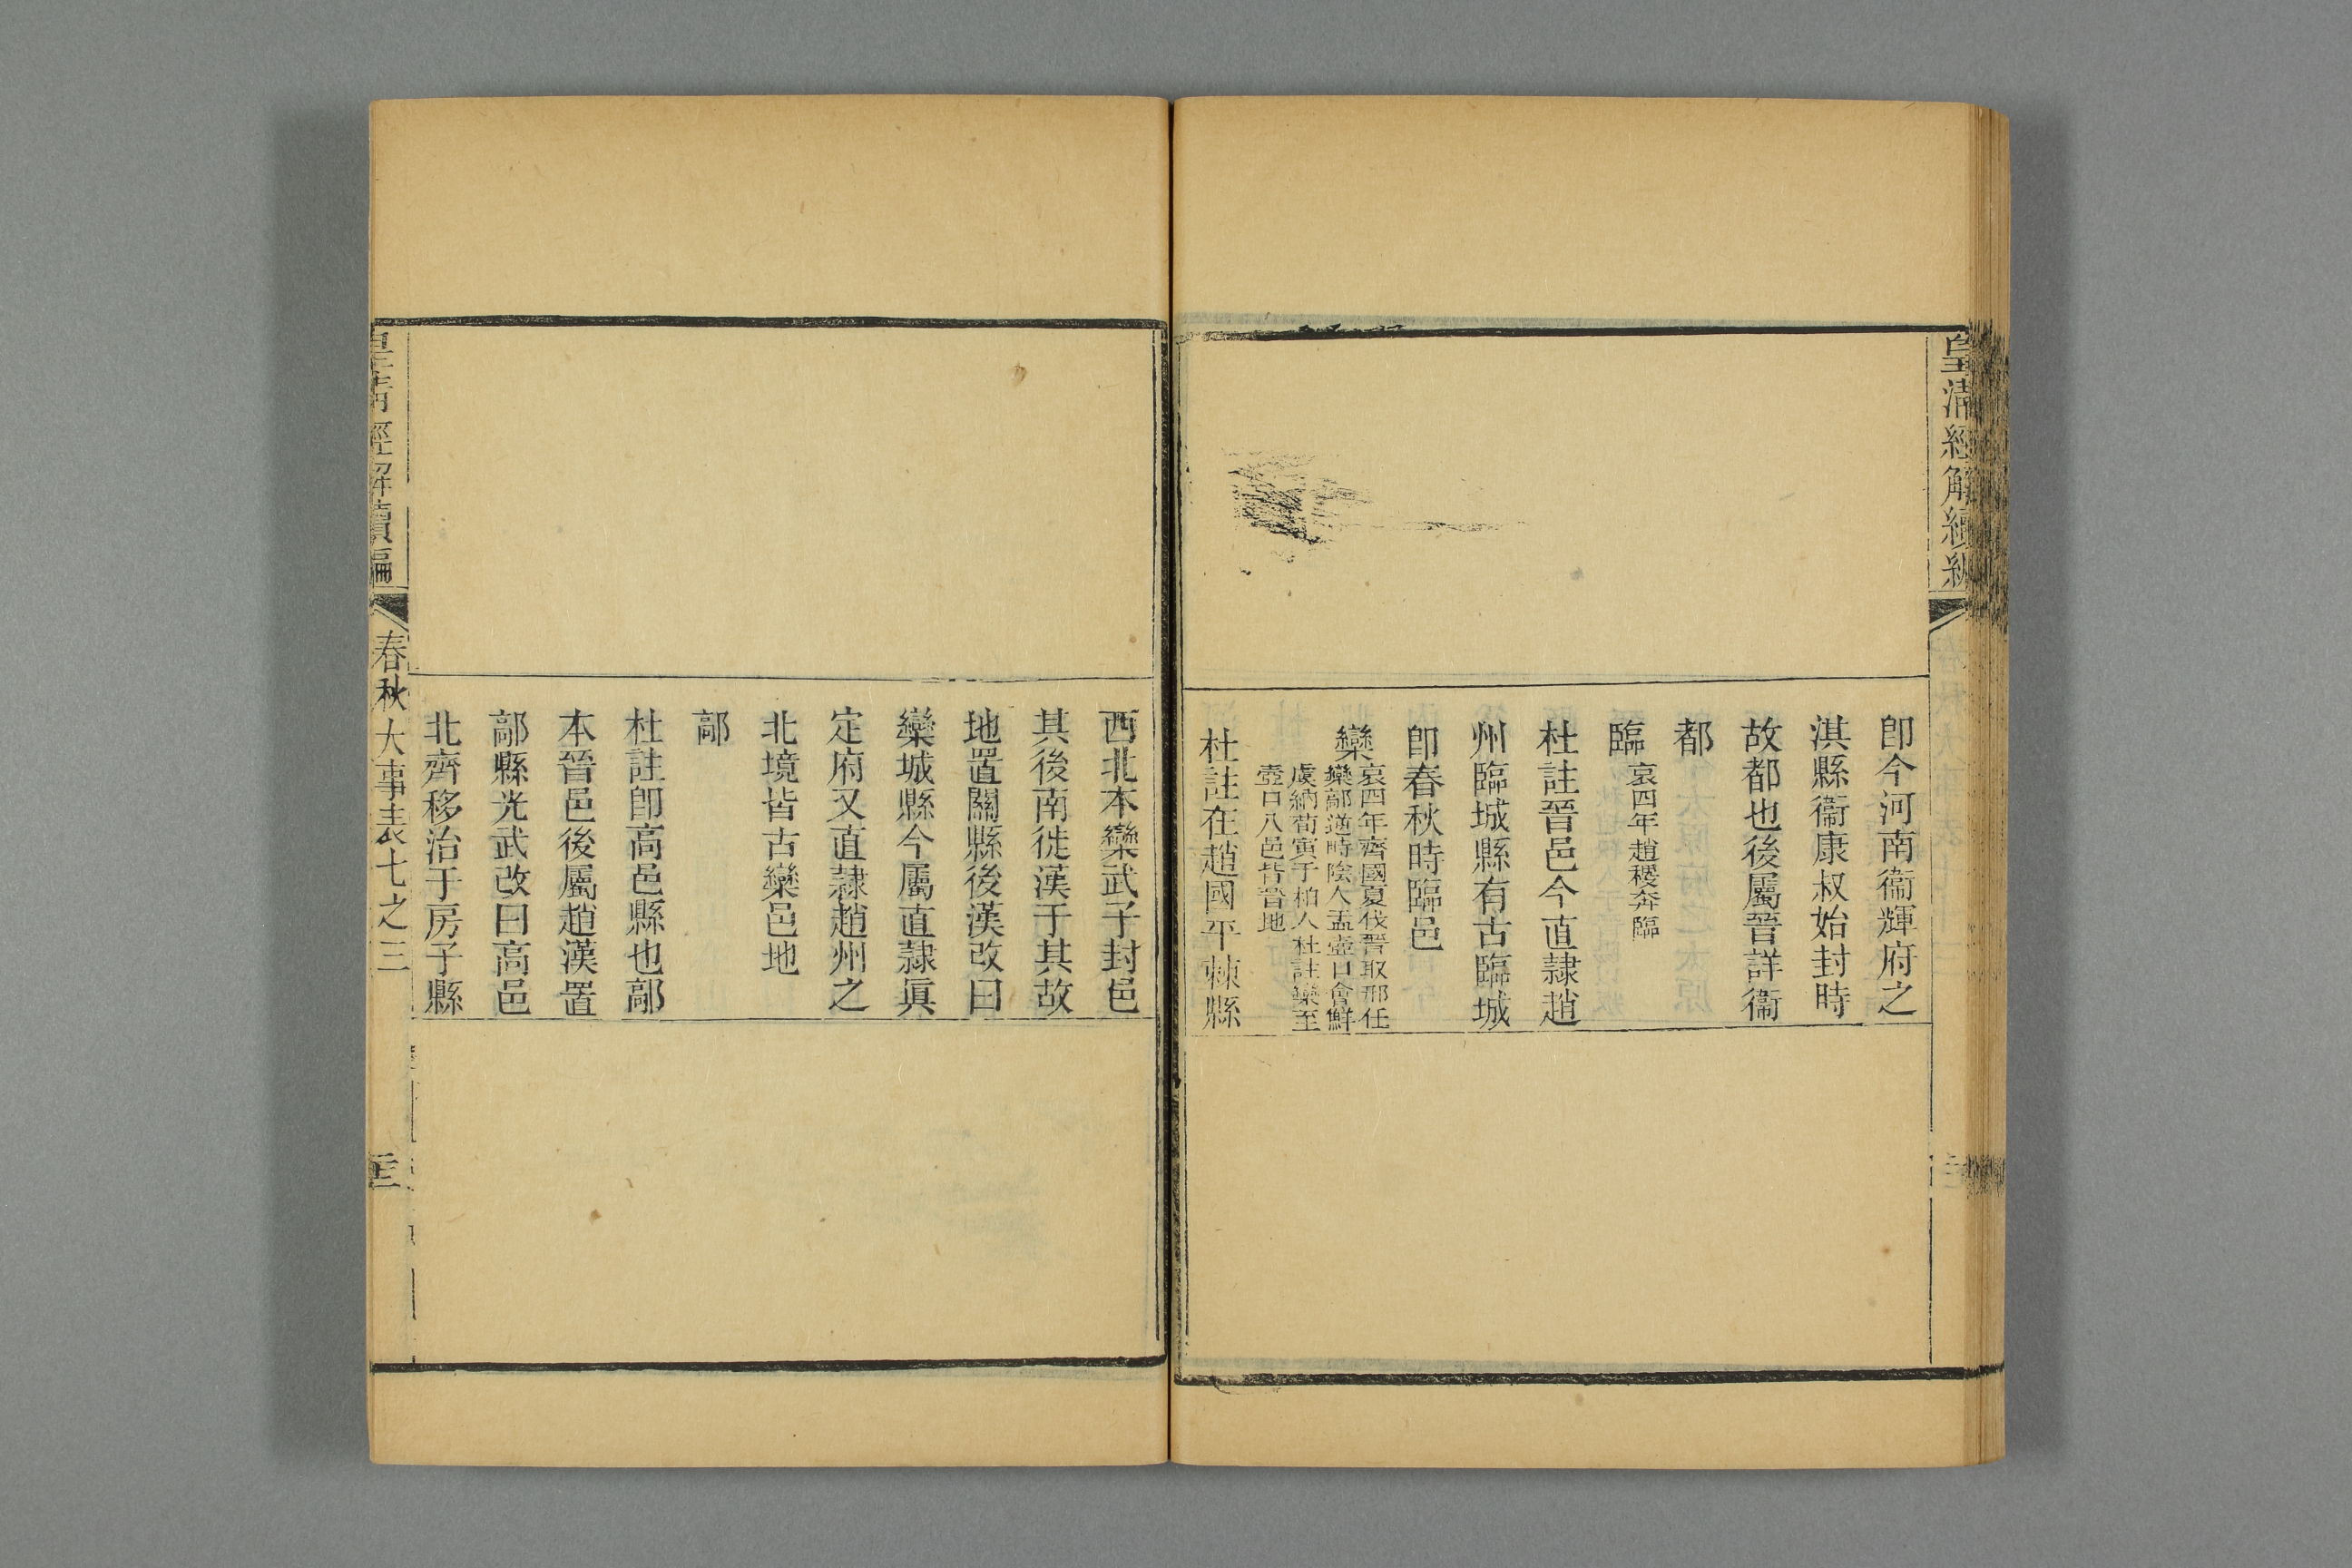 皇清經解續編
即今河南衞輝府之
淇縣衞康叔始封時
故都也後屬晉詳衞
都
臨哀四年趙稷奔臨
杜註晉邑今直隷趙
州臨城縣有古臨城
卽春秋時臨邑
欒哀四年齊國夏伐晉取邢任
欒鄗逆畤陰人盂壺口會鮮
虞納荀寅于柏人杜註欒至
壺口八邑皆晉地
杜註在趙國平棘縣
西北本欒武子封邑
其後南徙漢于其故
地置關縣後漢改曰
欒城縣今屬直隷眞
定府又直隷趙州之
北境皆古欒邑地
鄗
杜註卽高邑縣也鄗
本晉邑後屬趙漢置
鄗縣光武改曰高邑
北齊移治于房子縣
皇清經解續編
春秋大事表七之三